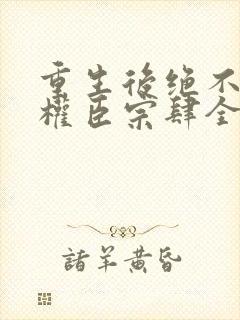 重生後绝不
權臣宗肆全
諸羊黄昏